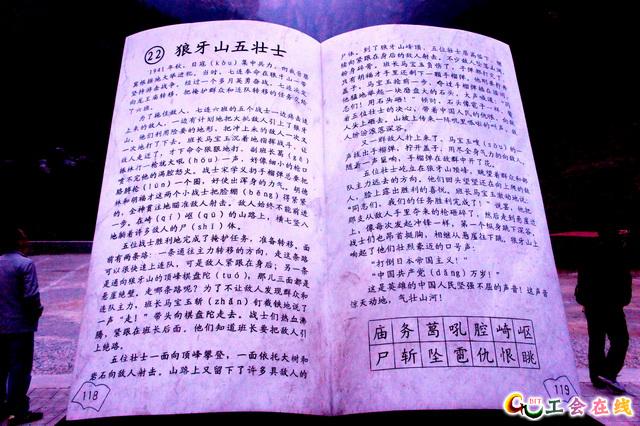 ㉒ 狼牙山五壮士
1941年秋，日寇（kòu）集中兵力，向我晋察
冀根据地大举进犯。当时，七连奉命在狼牙山一带
坚持游击战争。经过一个多月英勇奋战，七连决定
向龙王庙转移，把掩护群众和连队转移的任务交给
了六班。
为了拖住敌人，七连六班的五个战士一边痛击追
上来的敌人，一边有计划地把大批敌人引上了狼牙
山。他们利用险要的地形，把冲上来的敌人一次又
一次地打了下去。班长马宝玉沉着地指挥战斗，让
敌人走近了，才下命令狠狠地打。副班长葛（gě）
振林打一枪就大吼（hǒu）一声，好像细小的枪口
喷不完他的满腔怒火。战士宋学义扔手榴弹总要把
胳膊抡（lūn）一个圈，好使出浑身的力气。胡德
林和胡福才这两个小战士把脸绷（běng）得紧紧
的，全神贯注地瞄准敌人射击。敌人始终不能前进
一步。在崎（qí）岖（qū）的山路上，横七竖八
地躺着许多敌人的尸（shī）体。
五位战士胜利地完成了掩护任务，准备转移。面
前有两条路：一条通往主力转移的方向，走这条路
可以很快追上连队，可是敌人紧跟在身后；另一条
是通向狼牙山的顶峰棋盘陀（tuó），那儿三面都是
悬崖绝壁。走哪条路呢？为了不让敌人发现群众和
连队主力，班长马宝玉斩（zhǎn）钉截铁地说了
一声“走！”带头向棋盘陀走去。战士们热血沸
腾，紧跟在班长后面。他们知道班长要把敌人引
上绝路。
五位壮士一面向顶峰攀登，一面依托大树和
岩石向敌人射击。山路上又留下了许多具敌人的
118
尸体。到了狼牙山峰顶，五位壮士居高临下，继
续向紧跟在身后的敌人射击。不少敌人坠落山涧，
粉身碎骨。班长马宝玉负伤了，子弹都打完了，
只有胡福才手里还剩下一颗手榴弹。他刚要拧开
盖子，马宝玉抢前一步，夺过手榴弹插在腰间，
他猛地举起一块磨盘大的石头，大声喊道：“同
志们！用石头砸！”顿时，石头像雹子一样，带
着五位壮士的决心，带着中国人民的仇恨，向敌
人头上砸去。山坡上传来一阵叽里呱啦的叫声，敌
人纷纷滚落深谷。
又一群敌人扑上来了。马宝玉嗖（sōu）的一
声拔出手榴弹，拧开盖子，用尽全身气力扔向敌人。
随着一声巨响，手榴弹在敌群中开了花。
五位壮士屹立在狼牙山顶峰，眺望着群众和部
队主力远去的方向。他们回头望望还在向上爬的敌
人，脸上露出胜利的喜悦。班长马宝玉激动地说：
“同志们，我们的任务胜利完成了！”说罢，他把
那支从敌人手里夺来的枪砸碎了，然后走到悬崖边
上，像每次发起冲锋一样，第一个纵身跳下深谷。
战士们也昂首挺胸，相继从悬崖往下跳。狼牙山上
响起了他们壮烈豪迈的口号声：
“打倒日本帝国主义！”
“中国共产党（dǎng）万岁！”
这是英雄的中国人民坚强不屈的声音！这声音
惊天动地，气壮山河！
庙 务 葛 吼 腔 崎 岖
尸 斩 坠 雹 仇 恨 眺
119
BIT
工会在线